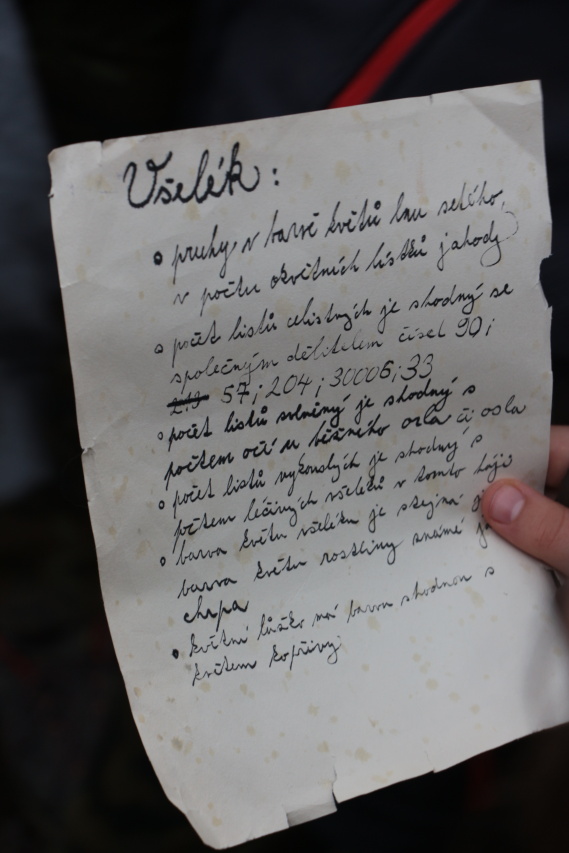 Všelék:
• pruhy v barvě květů lnu setého,
v počtu okvětních lístků jahody
• počet listů celistvých je shodný se
společným dělitelem čísel 90;
57; 204; 30006; 33
• počet listů srdčitý je shodný s
počtem očí u běžného orla či osla
• počet listů vykouslých je shodný s
počtem léčivých všeléků v tomto háji
• barva květu všeléku je stejná
barva květu rostliny známé
chrpa
• květní lůžko má barvu shodnou s
květem kopřivy